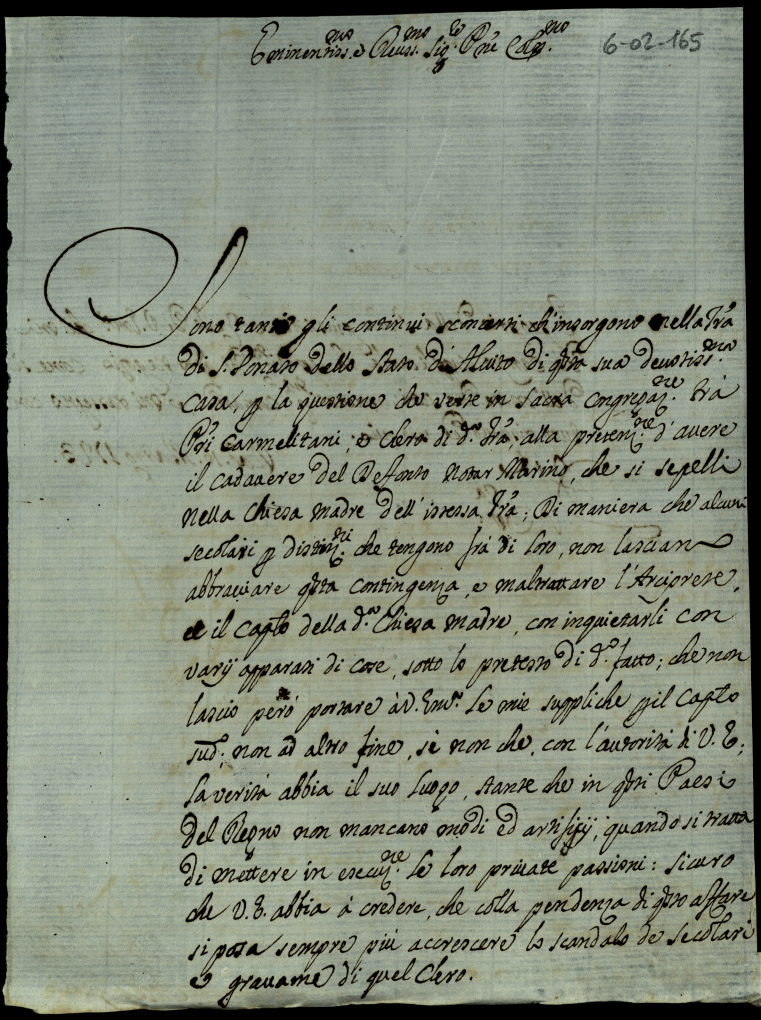 Eminentiss.mo e Reuss.mo Sig.re P'ne Col.mo
6-02-165
Sono tanti gli continui sconcerti ch'insorgono nella Tr̃a
di S. Donato dello Stato d'Aluito di q'sta sua deuotiss.ma
Casa, p la questione che verte in Sacra Congregaz.ne trà
P'ri Carmelitani, e Clero di d.a Tr̃a, alla pretenz.ne d'auere
il cadauere del Defonto Notar Marino, che si sepellì
nella Chiesa madre dell'istessa Tr̃a; Di maniera che alcuni
secolari p distinz.ni che tengono frà di loro, non lascian
abbracciare q'sta contingenza, e maltrattare l'Arciprete,
e il Cap̃lo della d.a Chiesa madre, con inquietarli con
varij apparati di cose, sotto lo pretesto di d.o fatto; che non
lascio però portare à V. Em.a le mie suppliche p il Cap̃lo
sud.o; non ad altro fine, se non che, con l'autorità di V. E;
la verità abbia il suo luogo, stante che in q'sti Paesi
del Regno non mancano modi ed artifizij, quando si tratta
di mettere in esecuz.ne le loro priuate passioni: Sicuro
che V. E. abbia à credere, che colla pendenza di q'sto affare
si possa sempre più accrescere lo scandalo de secolari
e grauame di quel Clero.